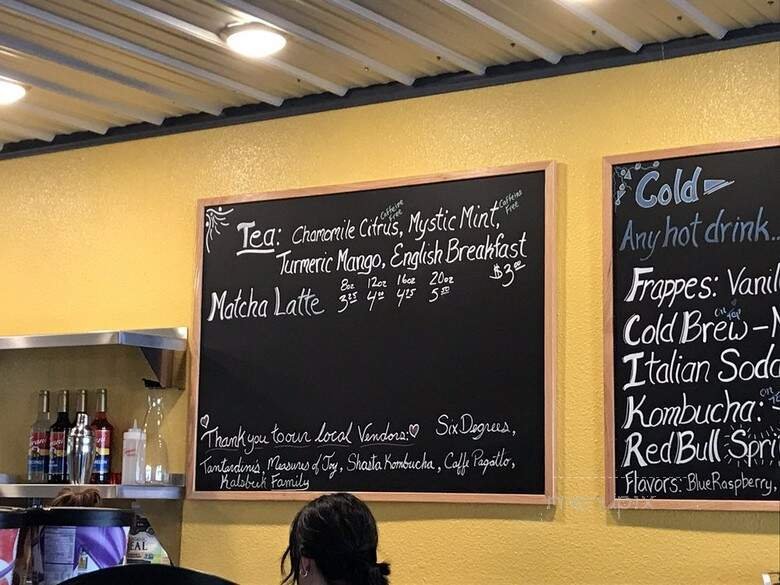 Tea: Chamomile Citrus, Caffeine Free Mystic Mint, Caffeine Free
Turmeric Mango, English Breakfast
$3.00
8oz 12oz 16oz 20oz
Matcha Latte 3.25 4.00 4.25 5.50
Thank you to our local Vendors: Six Degrees,
Tantardinis, Measures of Joy, Shasta Kombucha, Caffe Pagatto,
Kalsbeek Family
Cold
Any hot drink...
Frappes: Vanil
Cold Brew -
Italian Soda
Kombucha:
Red Bull Spri
Flavors: Blue Raspberry,